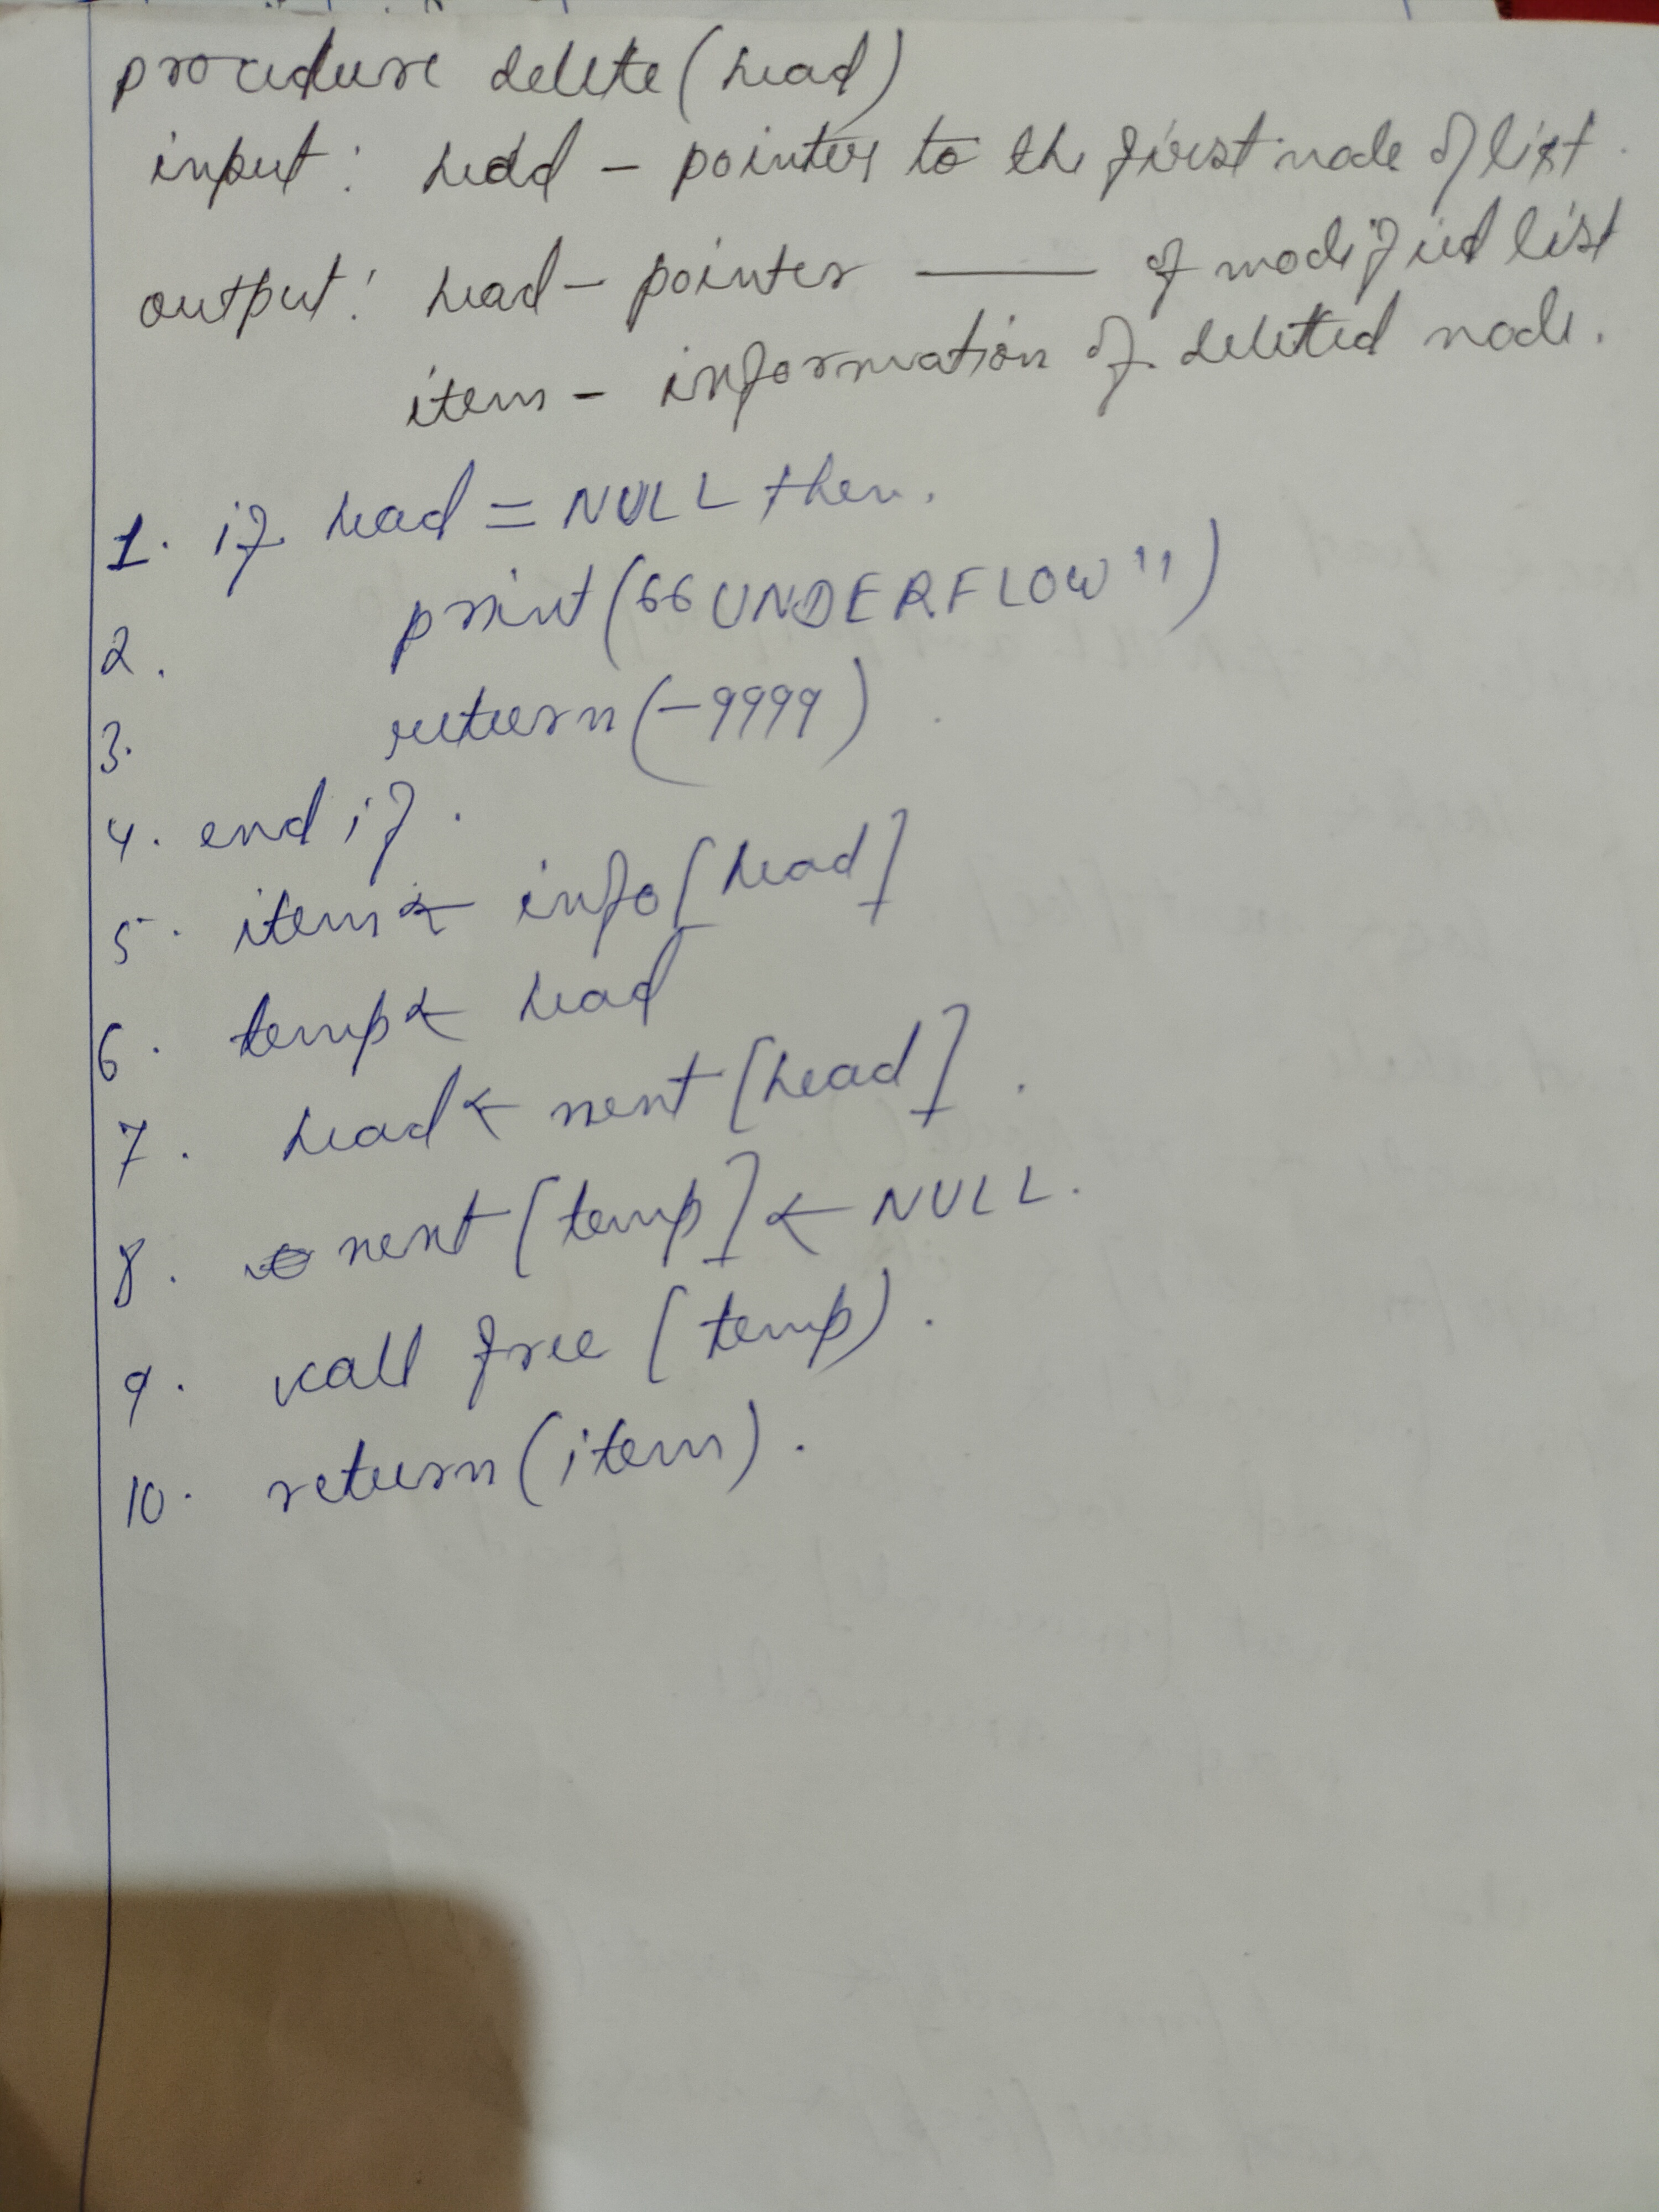 procedure delete (head)
input : head - pointer to the first node of list.
output : head - pointer —— of modified list
item - information of deleted node.
1. if head = NULL then.
2. print ("UNDERFLOW")
3. return (-9999)
4. end if.
5. item ← info [head]
6. temp ← head
7. head ← next [head].
8. next [temp] ← NULL.
9. call free (temp).
10. return (item).